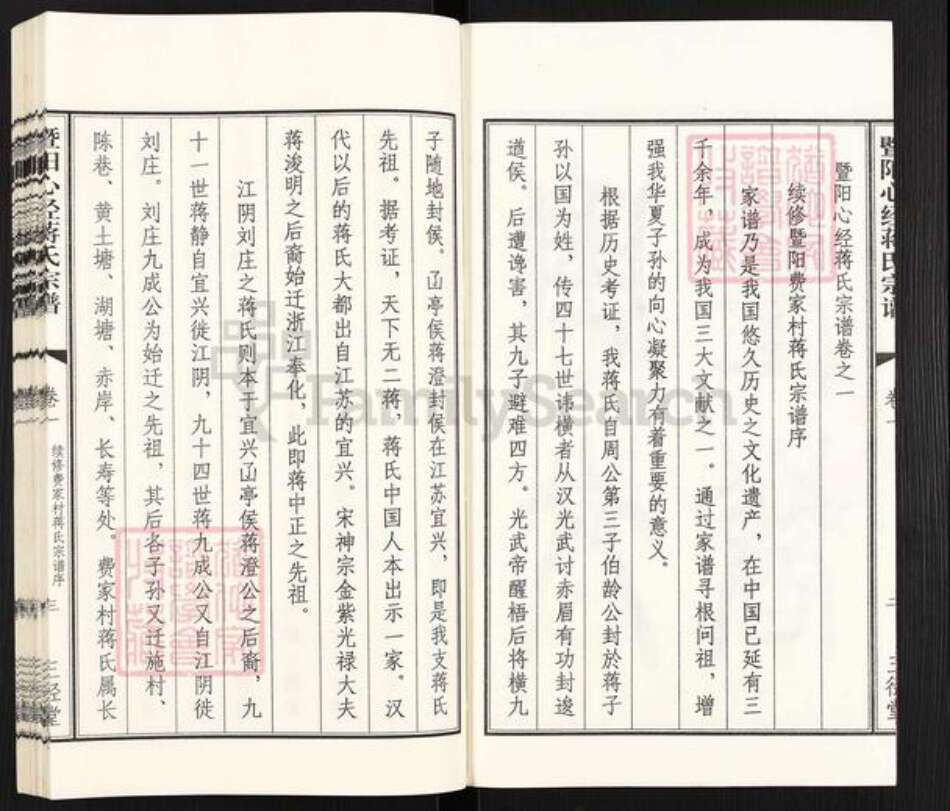 暨阳心经蒋氏宗谱卷之一
续修暨阳费家村蒋氏宗谱序
家谱乃是我国悠久历史之文化遗产，在中国已延有三
千余年，成为我国三大文献之一。通过家谱寻根问祖，增
强我华夏子孙的向心凝聚力有着重要的意义。
根据历史考证，我蒋氏自周公第三子伯龄公封於蒋子
孙以国为姓，传四十七世讳横者从汉光武讨赤眉有功封逡
道侯。后遭谗害，其九子避难四方。光武帝醒悟后将横九
子随地封侯。㔾亭侯蒋澄封侯在江苏宜兴，即是我支蒋氏
先祖。据考证，天下无二蒋，蒋氏中国人本出示一家。汉
代以后的蒋氏大都出自江苏的宜兴。宋神宗金紫光禄大夫
蒋浚明之后裔始迁浙江奉化，此即蒋中正之先祖。
江阴刘庄之蒋氏则本于宜兴㔾亭侯蒋澄公之后裔，九
十一世蒋静自宜兴徙江阴，九十四世蒋九成公又自江阴徙
刘庄。刘庄九成公为始迁之先祖，其后各子孙又迁施村、
陈巷、黄土塘、湖塘、赤岸、长寿等处。费家村蒋氏属长
暨阳心经蒋氏宗谱
卷一
续修费家村蒋氏宗谱序
三
三径堂
FamilySearch